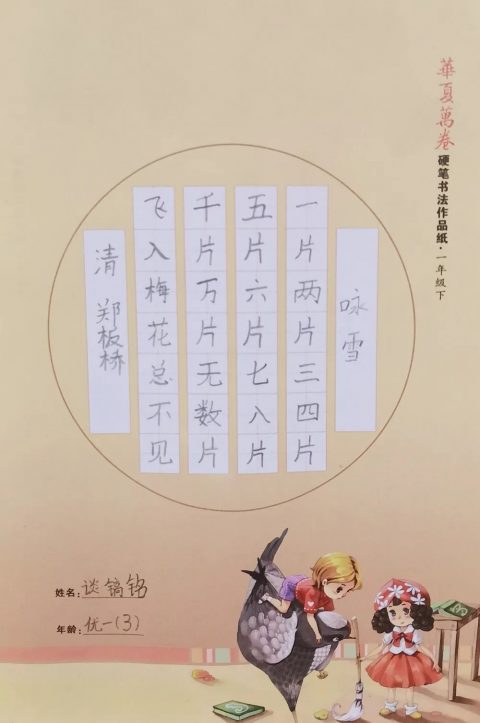 華夏萬卷
硬笔书法作品紙·一年级下
咏雪
一片两片三四片
五片六片七八片
千片万片无数片
飞入梅花总不见
清 郑板桥
姓名：谈镐铭
年龄：优一(3)